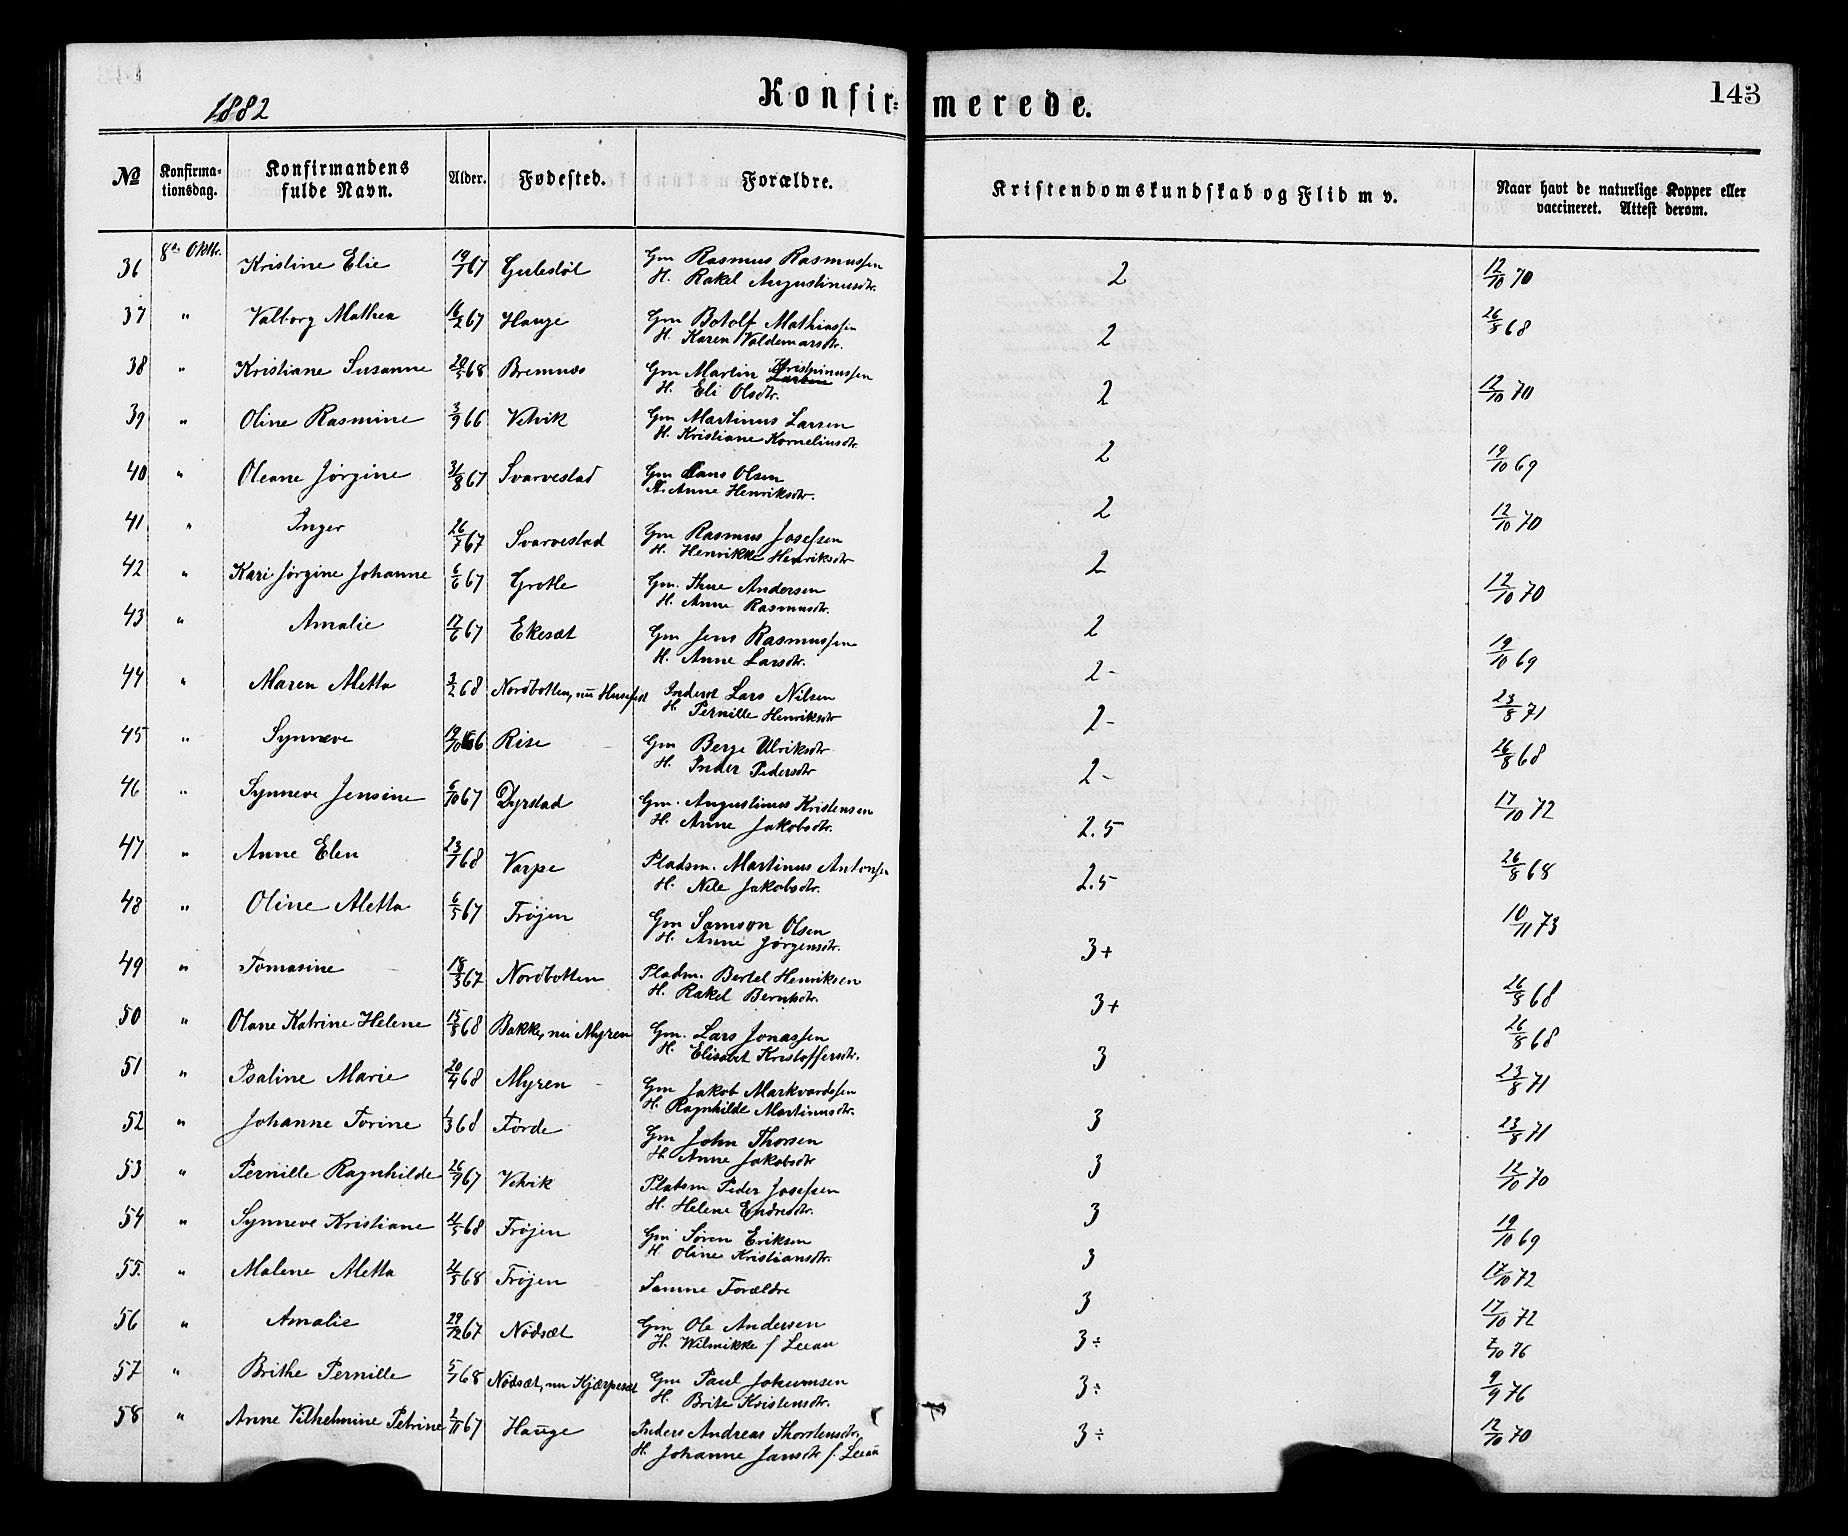 143
1882
Konfir=merede.
№ Konfirma-tionsdag. Konfirmandens fulde Navn. Alder. Fødested. Forældre. Kristendomskundskab og Flid m v. Naar havt de naturlige Kopper eller vaccineret. Attest derom.
36 8de Oktbr. Kristine Elie 19/7 67 Gulestøl Gm Rasmus Rasmussen 2 12/10 70
H. Rakel Augustinusdtr.
37 " Valborg Mathea 16/2 67 Hauge Gm Botolf Mathiassen 2 26/8 68
H. Karen Valdemarsdtr.
38 " Kristiane Susanne 20/5 68 Bremnes Gm Martin Krispinussen 2 12/10 70
H. Eli Olsdtr.
39 " Oline Rasmine 3/9 66 Vetvik Gm Martinus Larsen 2 19/10 69
H. Kristiane Korneliusdtr.
40 " Oleane Jørgine 31/8 67 Svarvestad Gm Claus Olsen 2 12/10 70
H. Anne Henriksdtr.
41 " Inger 26/7 67 Svarvestad Gm Rasmus Josefsen 2 12/10 70
H. Henrikke Henriksdtr
42 " Kari Jørgine Johanne 6/6 67 Grotle Gm. Thue Andersen 2 19/10 69
H. Anne Rasmusdtr.
43 " Amalie 17/6 67 Ekesæt Gm Jens Rasmussen 2- 23/8 71
H. Anne Larsdtr.
44 " Maren Aletta 3/2 68 Nordbotten, nu Inderst Lars Nilsen 2- 26/8 68
H. Pernille Henriksdtr
45 " Synneve 19/10 66 Rise Gm Berge Ulriksdtr 2- 17/10 72
H. Inder Pedersdtr
46 " Synneve Jensine 6/10 67 Dyrstad Gm. Augustinus Kristensen 2.5 26/8 68
H. Anne Jakobsdtr.
47 " Anne Elen 23/1 68 Varpe Pladsm. Martinus Antonsen 2.5 10/11 73
H. Nele Jakobsdtr.
48 " Oline Aletta 6/5 67 Frøjen Gm Samson Olsen 3+ 26/8 68
H. Anne Jørgensdtr.
49 " Tomasine 18/3 67 Nordbotten Pladsm. Bertel Henriksen 3+ 26/8 68
H. Rakel Berntsdtr.
50 " Olane Katrine Helene 15/3 68 Bakke, nu Myren Gm. Lars Jonassen 3 23/8 71
H. Elisabet Kristoffersdtr.
51 " Psaline Marie 20/4 68 Myren Gm Jakob Markvardssen 3 23/8 71
H. Ragnhilde Martinusdtr.
52 " Johanne Torine 1/3 68 Førde Gm John Thorsen 3 12/10 70
H. Anne Jakobsdtr
53 " Pernille Ragnhilde 26/9 67 Vetvik Pladsm Peder Josefsen 3 19/10 69
H. Helene Endresdtr.
54 " Synneve Kristiane 21/5 68 Frøjen Gm Søren Eriksen 3 17/10 72
H. Oline Kristiansdtr.
55. " Malene Aletta 21/5 68 Frøjen Samme Forældre 3 17/10 72
56 " Amalie 29/12 67 Nødsæt Gm Ole Andersen 3÷ 2/10 76
H. Wilmikke f Leeau
57 " Brithe Pernille 5/1 68 Nødsæt, nu Gm Paul Jokumsen 3÷ 9/9 76
H. Brite Kristensdtr.
58 " Anne Vilhelmine Petrine 2/11 67 Hauge Inders Andreas Thorstensdtr. 3÷ 12/10 70
H. Johanne Jansdtr f. Leeau